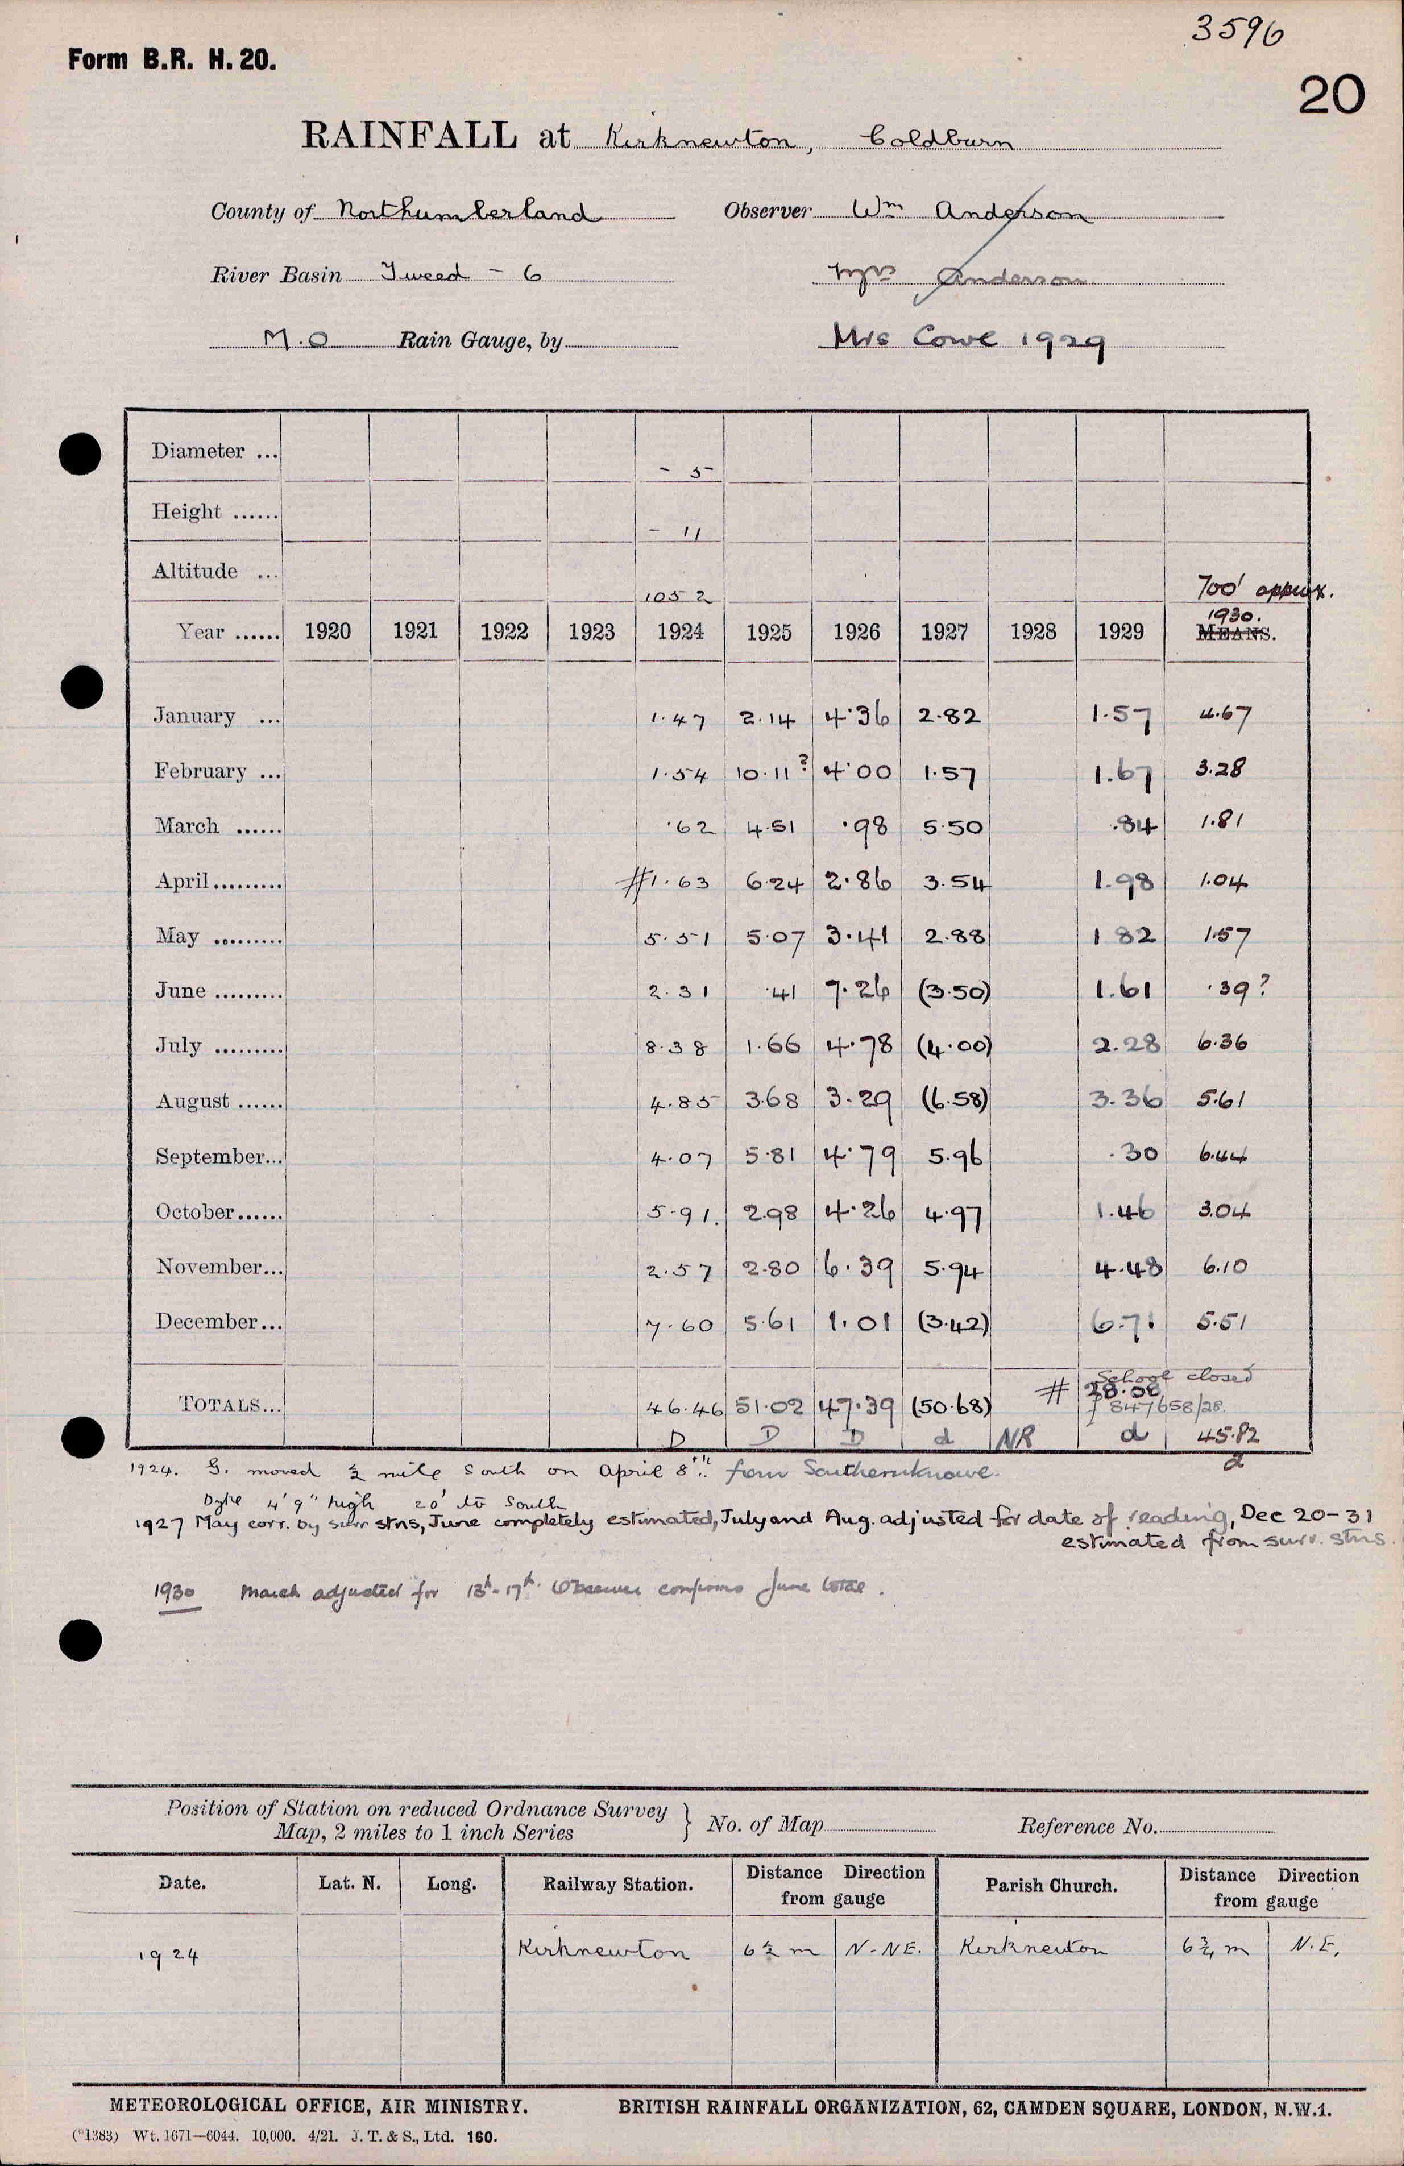 3596
Form B.R. H. 20.
20
RAINFALL at Kirknewton, Coldburn
County of Northumberland Observer Wm Anderson
River Basin Tweed - 6 Mrs Anderson
M.O Rain Gauge, by Mrs Cowe 1929
Diameter ... - 5
Height ...... - 11
Altitude ... 1052 700' approx.
1930.
Year ...... 1920 1921 1922 1923 1924 1925 1926 1927 1928 1929 MEANS.
January ... 1.47 2.14 4.36 2.82 1.57 4.67
February ... 1.54 10.11? 4.00 1.57 1.67 3.28
March ...... .62 4.51 .98 5.50 .84 1.81
April......... #1.63 6.24 2.86 3.54 1.98 1.04
May ......... 5.51 5.07 3.41 2.88 1 82 1.57
June ......... 2.31 .41 7.26 (3.50) 1.61 .39?
July ......... 8.38 1.66 4.78 (4.00) 2.28 6.36
August ...... 4.85 3.68 3.29 (6.58) 3.36 5.61
September... 4.07 5.81 4.79 5.96 .30 6.44
October...... 5.91. 2.98 4.26 4.97 1.46 3.04
November... 2.57 2.80 6.39 5.94 4.48 6.10
December... 7.60 5.61 1.01 (3.42) 6.71 5.51
School closed
TOTALS... 46.46 51.02 47.39 (50.68) # 28.08
847658/28.
D D D d NR d 45.82
d
1924. G. moved ½ mile South on April 8th. from Southernknowe.
Dyke 4' 9" high 20' to South
1927 May corr. by surr stns, June completely estimated, July and Aug. adjusted for date of reading, Dec 20-31
estimated from surr. stns.
1930 March adjusted for 13th-17th. Observer confirms June total.
Position of Station on reduced Ordnance Survey
Map, 2 miles to 1 inch Series } No. of Map Reference No.
Date. Lat. N. Long. Railway Station. Distance Direction from gauge Parish Church. Distance Direction from gauge
1924 Kirknewton 6½ m N-NE. Kirknewton 6¾ m N.E.
METEOROLOGICAL OFFICE, AIR MINISTRY. BRITISH RAINFALL ORGANIZATION, 62, CAMDEN SQUARE, LONDON, N.W.1.
(*1383) Wt. 1671—6044. 10,000. 4/21. J. T. & S., Ltd. 160.